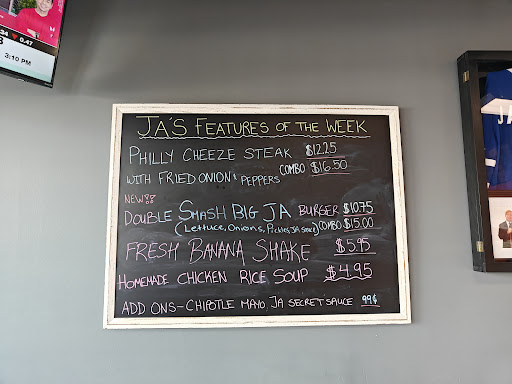 .34 ▼ 0.47
3:10 PM
JA'S FEATURES OF THE WEEK
PHILLY CHEEZE STEAK $12.25
WITH FRIED ONION & PEPPERS COMBO $16.50
NEW!!
DOUBLE SMASH BIG JA BURGER $10.75
(LETTUCE, ONIONS, PICKLES, JA SAUCE) COMBO $15.00
FRESH BANANA SHAKE $5.95
HOMEMADE CHICKEN RICE SOUP $4.95
ADD ONS - CHIPOTLE MAYO, JA SECRET SAUCE 99¢
JA